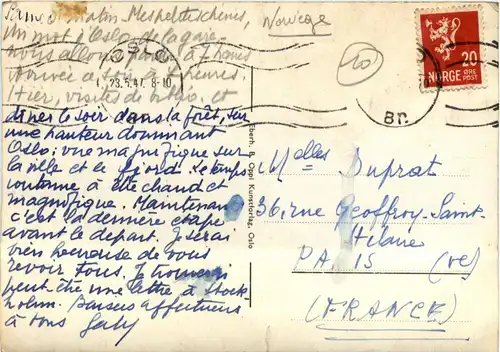 Samedi matin - Mes petites chéries,
Norvège
Un mot d'Oslo de la gare.
nous allons partir à 7 heures
Arrivée à 8 heures.
Hier, visites de et
dîner le soir dans la forêt, sur
une hauteur dominant
Oslo; vue magnifique sur
la ville et le fjord. Le temps
continue à être chaud et
magnifique. Maintenant
c'est la dernière étape
avant le départ. Je serai
bien heureuse de vous
revoir tous. Je trouverai
peut être une lettre à Stock-
holm. Baisers affectueux
à tous Gaby
OSLO
23.5.47. 8-10
Br.
20
NORGE ØRE
POST
Eberh. B. Oppi Kunstforlag, Oslo
Melles Duprat
36, rue Geoffroy-Saint-
Hilaire
PARIS (Ve)
(FRANCE)